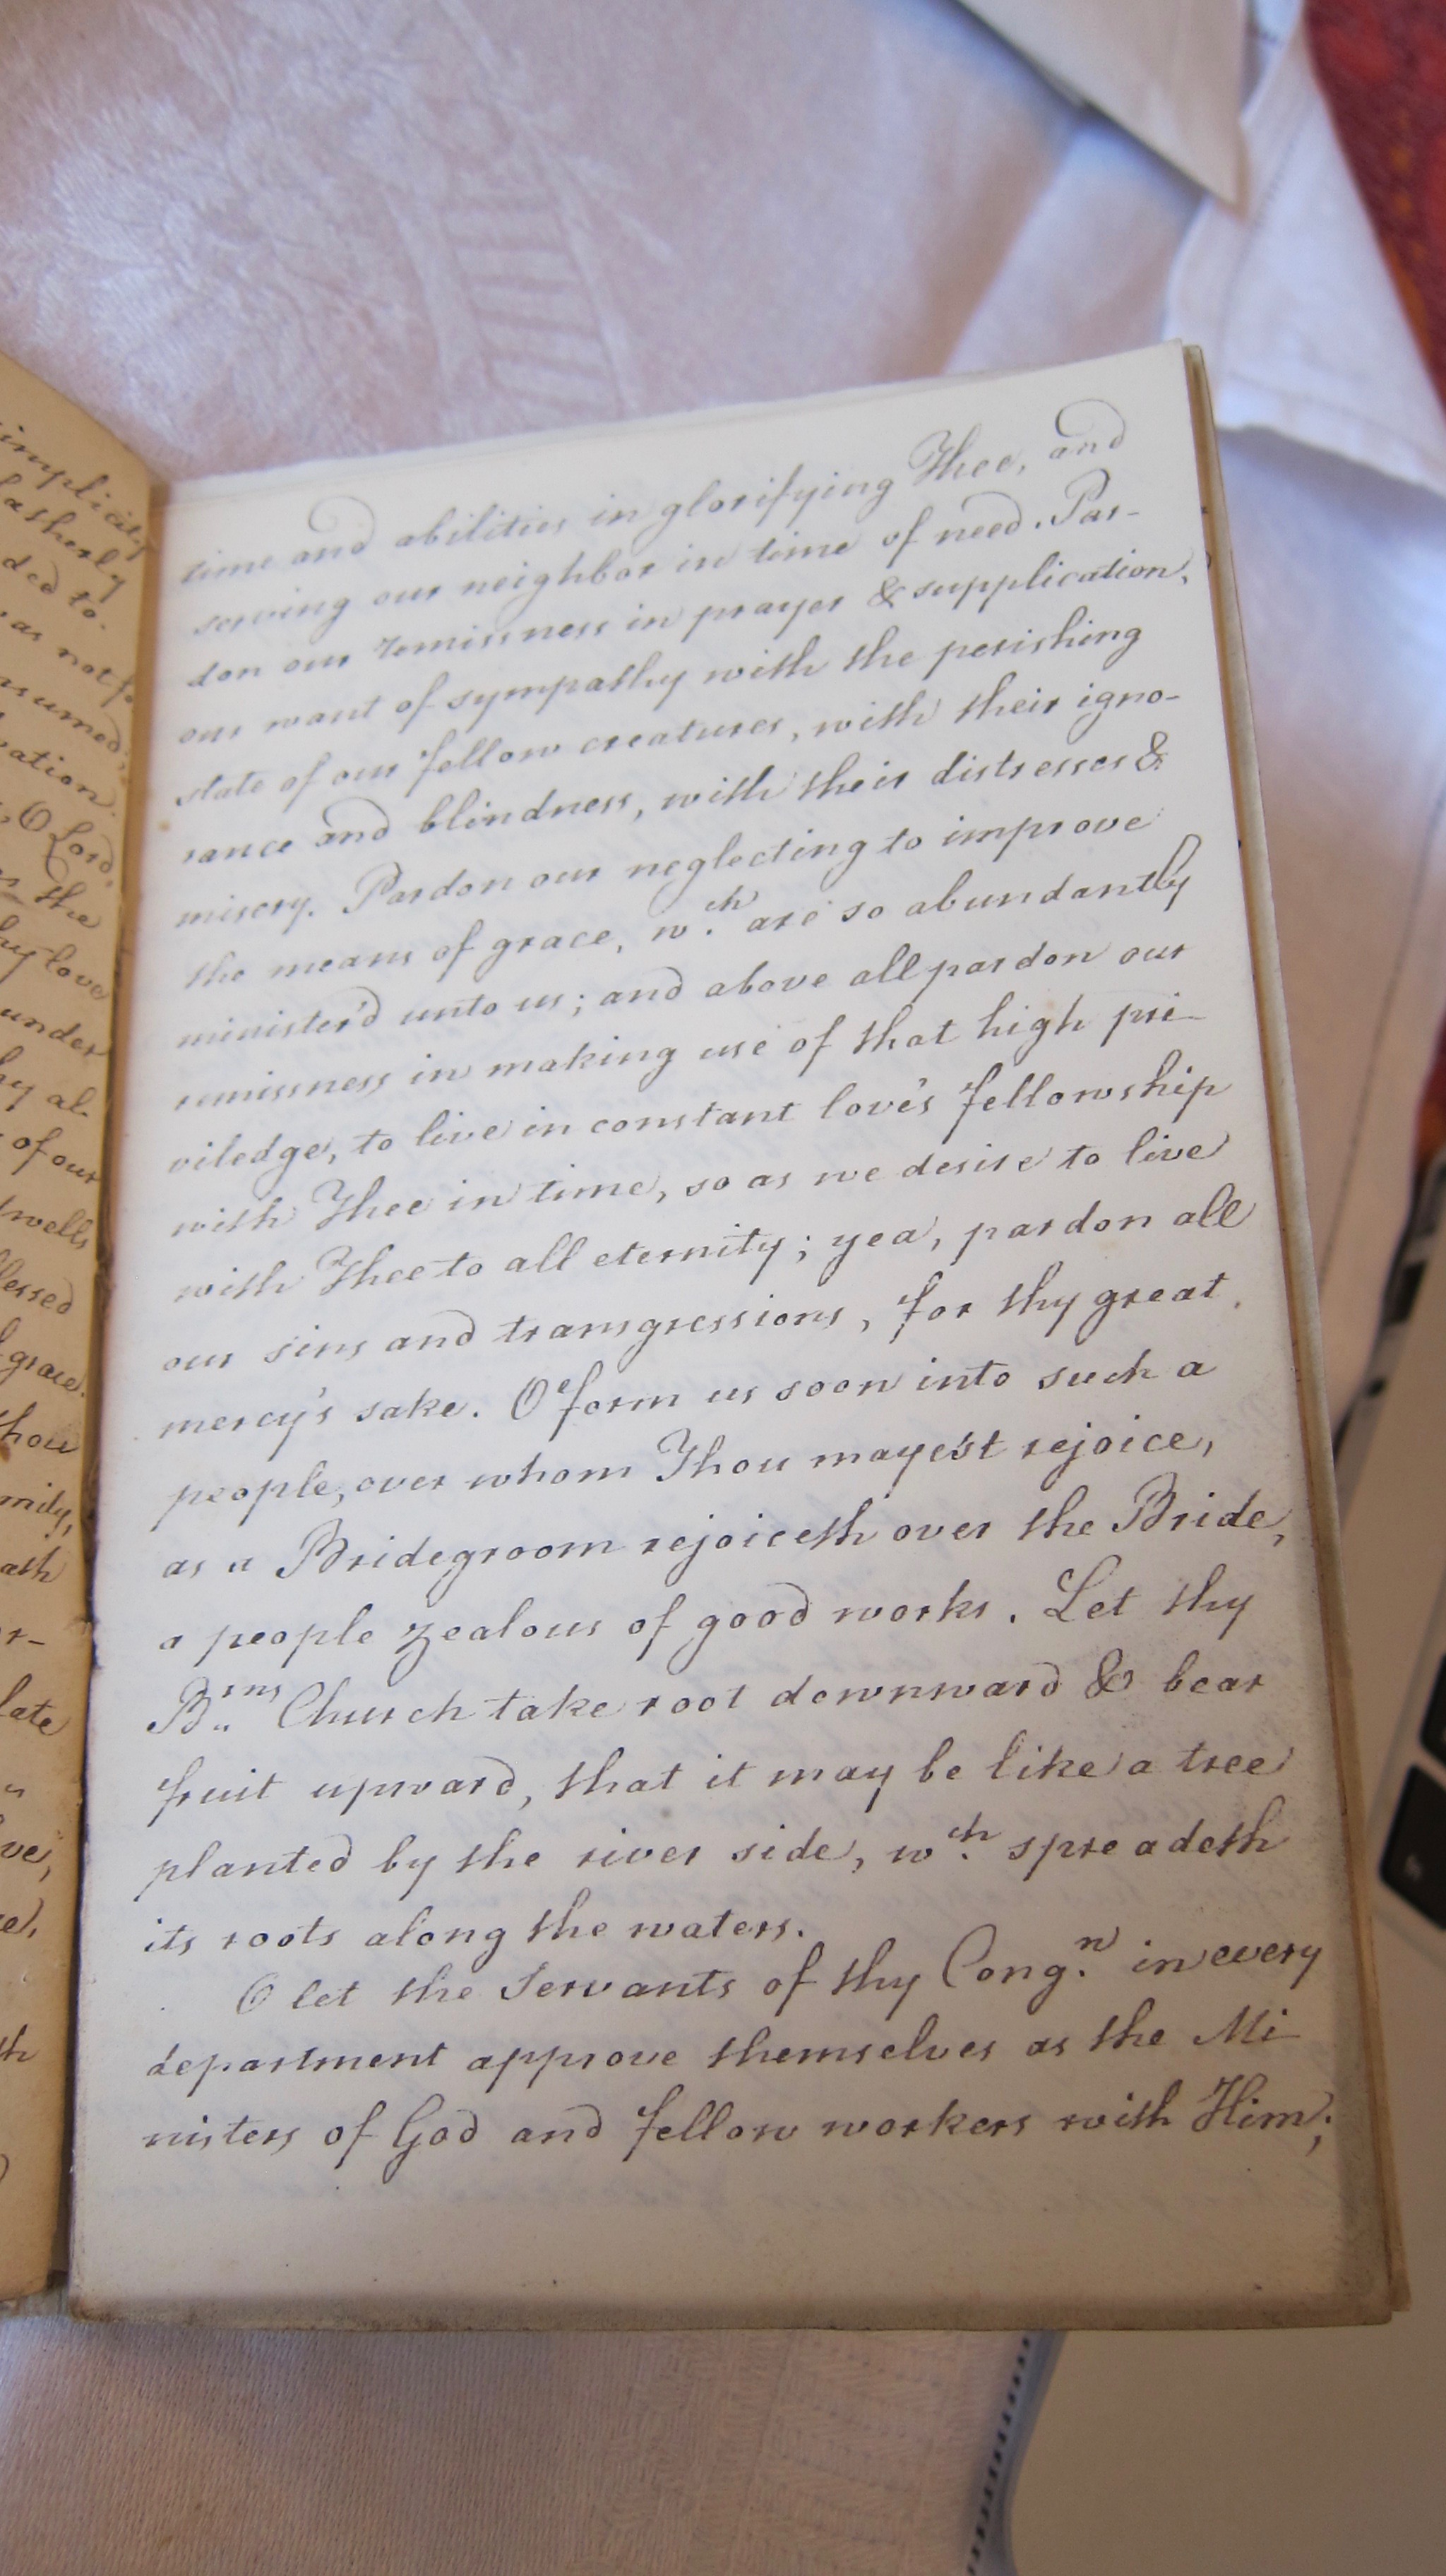 implicity
fatherly
ded to.
as not so
asumed,
ration.
, O Lord,
the
love
under
hy al-
of our
dwells
lessed
grace.
hou
mily,
ath
r-
late
ve,
th
time and abilities in glorifying Thee, and
serving our neighbor in time of need. Par-
don our remissness in prayer & supplication,
our want of sympathy with the perishing
state of our fellow creatures, with their igno-
rance and blindness, with their distresses &
misery. Pardon our neglecting to improve
the means of grace, w.ch are so abundantly
minister'd unto us; and above all pardon our
remissness in making use of that high pri-
viledge, to live in constant love's fellowship
with Thee in time, so as we desire to live
with Thee to all eternity; yea, pardon all
our sins and transgressions, for thy great
mercy's sake. O form us soon into such a
people, over whom Thou mayest rejoice,
as a Bridegroom rejoiceth over the Bride,
a people zealous of good works. Let thy
B.rns Church take root downward & bear
fruit upward, that it may be like a tree
planted by the river side, w.ch spreadeth
its roots along the waters.
O let the Servants of thy Cong.n in every
department approve themselves as the Mi-
nisters of God and fellow workers with Him;